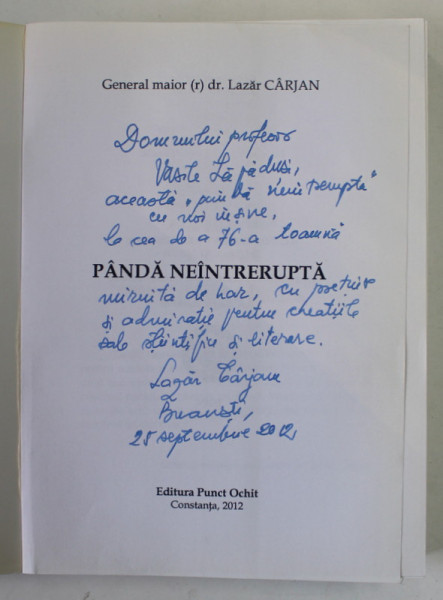 General maior (r) dr. Lazăr CÂRJAN
Domnului profesor
Vasile Lăpăduși,
această „pândă neîntreruptă"
cu noi înșine,
la cea de a 76-a toamnă
PÂNDĂ NEÎNTRERUPTĂ
miruită de har, cu prețuire
și admirație pentru creațiile
sale științifice și literare.
Lazăr Cârjan
București,
25 septembrie 2012
Editura Punct Ochit
Constanța, 2012